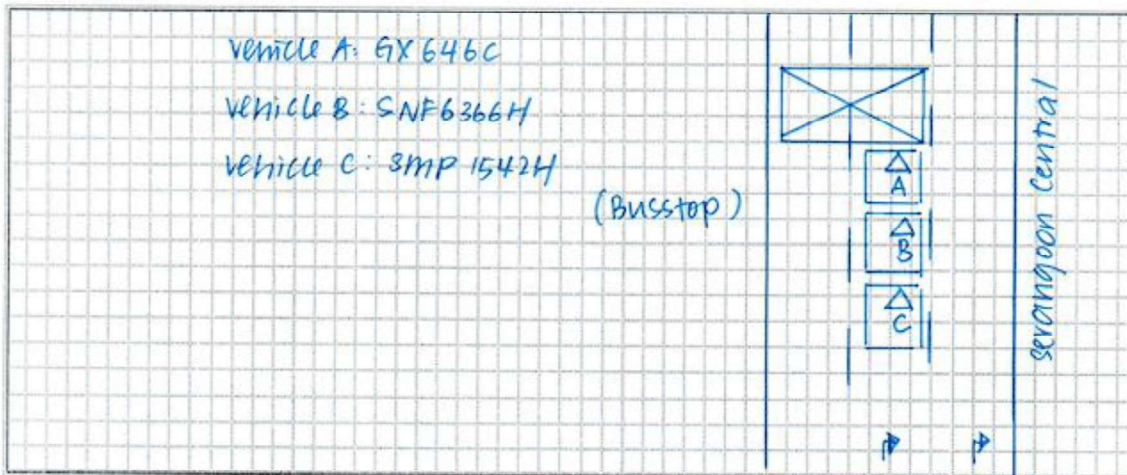 Vehicle A: GX 646C
Vehicle B: SNF6366H
Vehicle C: SMP 1542H
(Busstop)
A
B
C
Serangoon Central